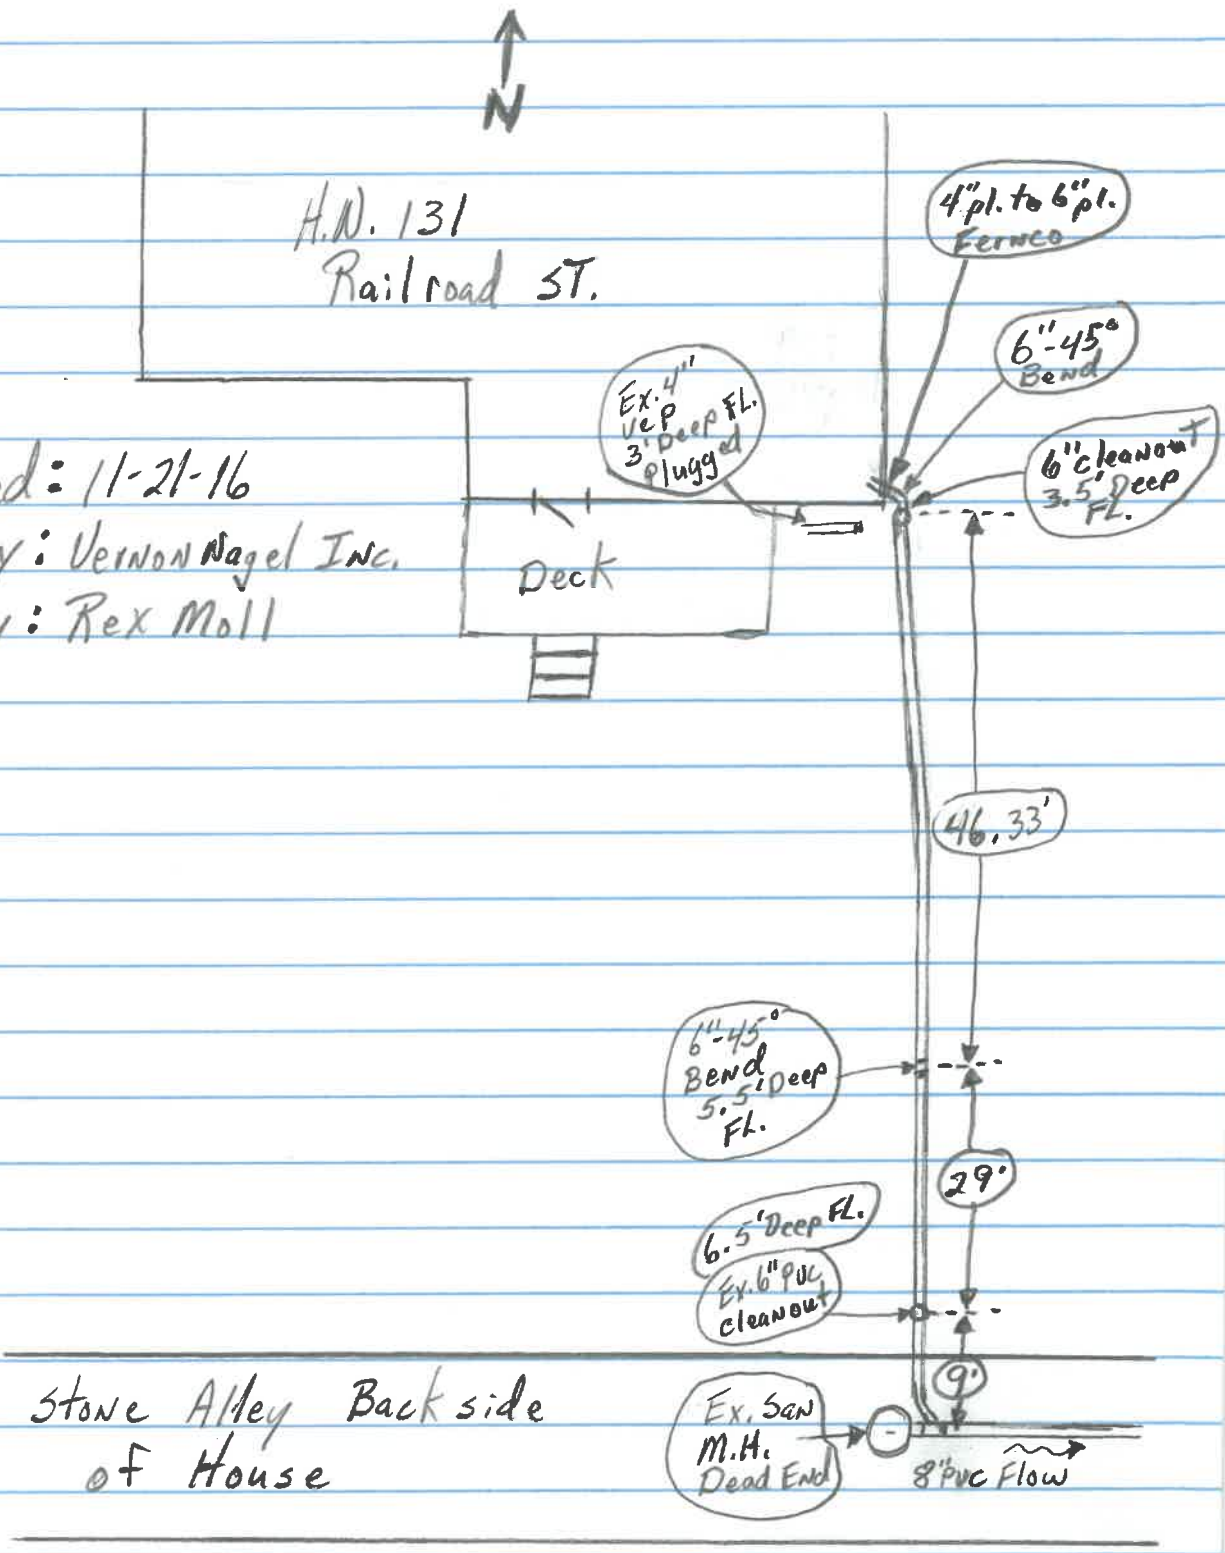 N
H.N. 131
Railroad ST.
4"pl. to 6"pl.
Fernco
6"-45°
Bend
Ex. 4"
VCP
3' Deep FL.
plugged
6" cleanout
3.5' Deep
FL.
d: 11-21-16
y: Vernon Nagel Inc.
y: Rex Moll
Deck
46.33'
6"-45°
Bend
5.5' Deep
FL.
29'
6.5' Deep FL.
Ex. 6" PVC
cleanout
9'
Stone Alley Back side
of House
Ex. San
M.H.
Dead End
8" PVC Flow